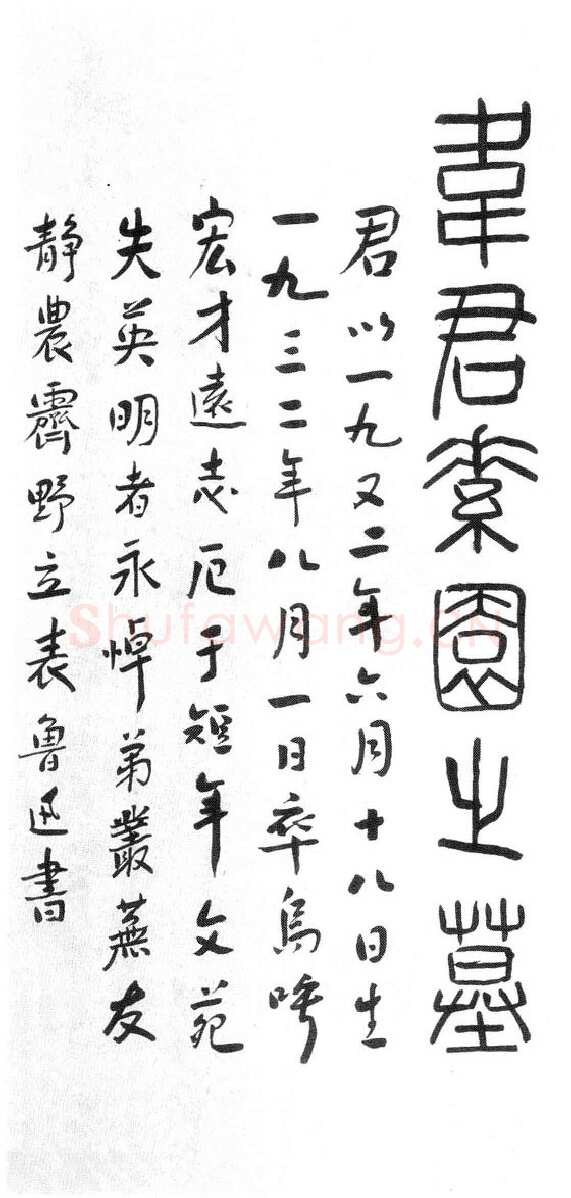 韋君素園之墓
君以一九又二年六月十八日生
一九三二年八月一日卒烏呼
宏才遠志厄于短年文苑
失英明者永悼弟叢蕪友
靜農霽野立表魯迅書
Shufawang.CN